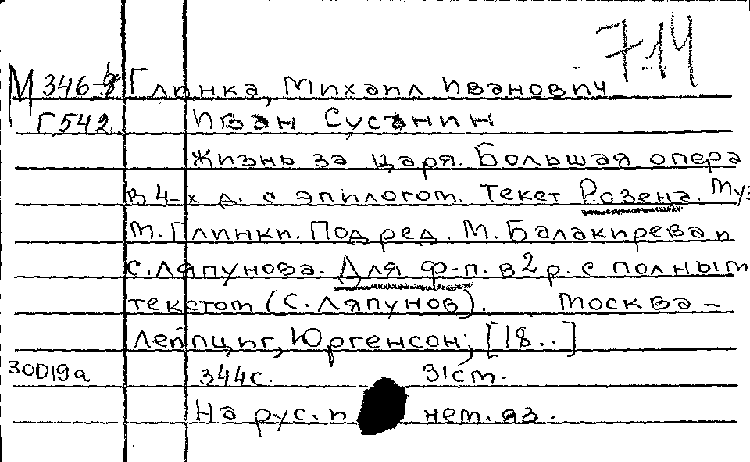 7-14
М 346-8 Глинка, Михаил Иванович
Г542 Иван Сусанин
Жизнь за царя. Большая опера
в 4-х д. с эпилогом. Текст Розена. Муз
М. Глинки. Под ред. М. Балакирева и
С. Ляпунова. Для ф-п. в 2 р. с полным
текстом (С. Ляпунов). Москва –
Лейпциг, Юргенсон; [18..]
344с. 31см.
На рус. и нем. яз.